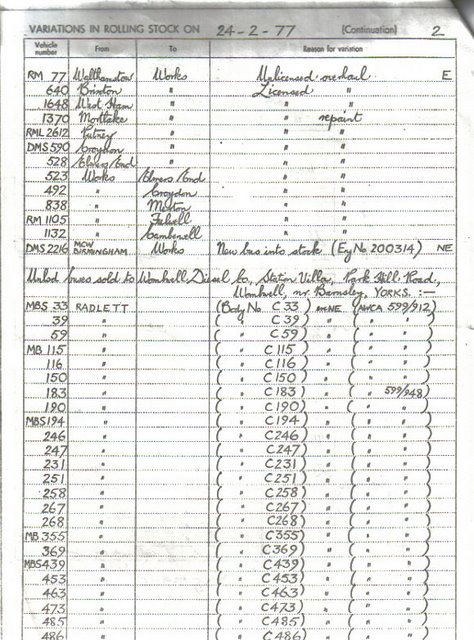 VARIATIONS IN ROLLING STOCK ON 24-2-77 (Continuation) 2
Vehicle number From To Reason for variation
RM 77 Walthamstow Works Unlicensed overhaul E
640 Brixton " Licensed "
1648 West Ham " " "
1370 Mortlake " " repaint
RML 2612 Putney " " "
DMS 590 Croydon " " "
528 Elmers End " " "
523 Works Elmers End " "
492 " Croydon " "
838 " Merton " "
RM 1105 " Fulwell " "
1132 " Camberwell " "
DMS 2216 MCW BIRMINGHAM Works New bus into stock (Eng No 200314) NE
Unlsd buses sold to Wombwell Diesel Co, Station Villa, Park Hill Road,
Wombwell, nr. Barnsley, YORKS. :—
MBS 33 RADLETT (Body No C 33) NE (AWCA 599/912)
39 " ( " C 39 ) " ( " " )
59 " ( " C 59 ) " ( " " )
MB 115 " ( " C 115 ) " ( " " )
116 " ( " C 116 ) " ( " " )
150 " ( " C 150 ) " ( " " )
183 " ( " C 183 ) " ( " 599/948 )
190 " ( " C 190 ) " ( " " )
MBS 194 " ( " C 194 ) " ( " " )
246 " ( " C 246 ) " ( " " )
247 " ( " C 247 ) " ( " " )
231 " ( " C 231 ) " ( " " )
251 " ( " C 251 ) " ( " " )
258 " ( " C 258 ) " ( " " )
267 " ( " C 267 ) " ( " " )
268 " ( " C 268 ) " ( " " )
MB 355 " ( " C 355 ) " ( " " )
369 " ( " C 369 ) " ( " " )
MBS 439 " ( " C 439 ) " ( " " )
453 " ( " C 453 ) " ( " " )
463 " ( " C 463 ) " ( " " )
473 " ( " C 473 ) " ( " " )
485 " ( " C 485 ) " ( " " )
486 " ( " C 486 ) " ( " " )